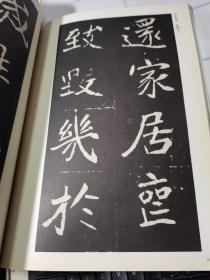 還家居喪
致毀幾於